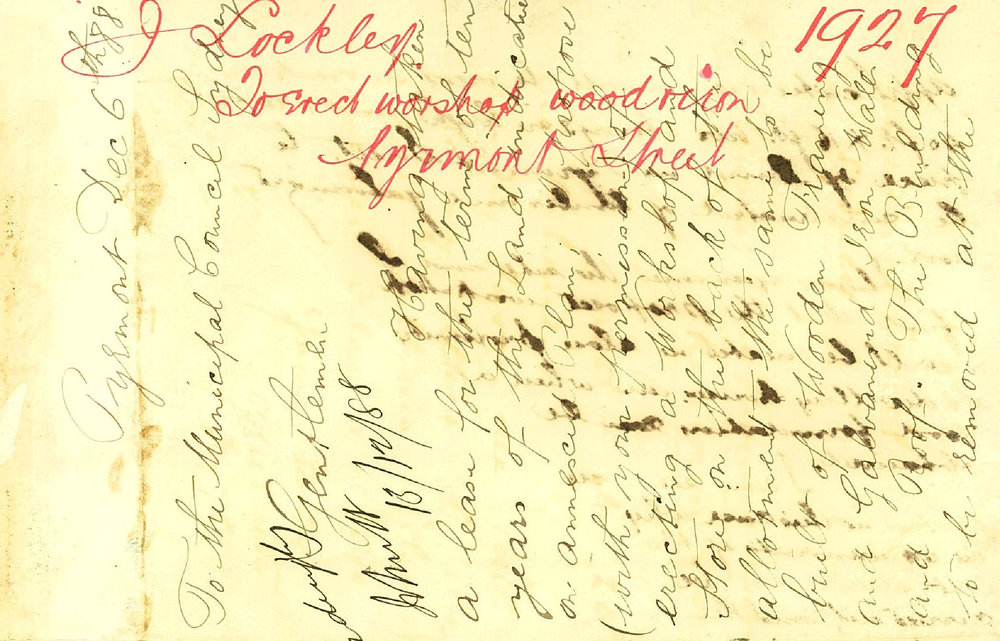 J Lockley 1927
To Erect worshop wood & iron
Pyrmont Street
Pyrmont Dec 6th 88
To the Municipal Council Sydney
Gentlemen
Having taken
a lease for the term of ten
years of the Land indicated
on annexed Plan I propose
(with your permission) of
erecting a Workshop and
Store on the back of the
allotment the same to be
built of Wooden Framing
and Galvanised Iron Walls
and Roof The Building
to be removed at the
13/12/88